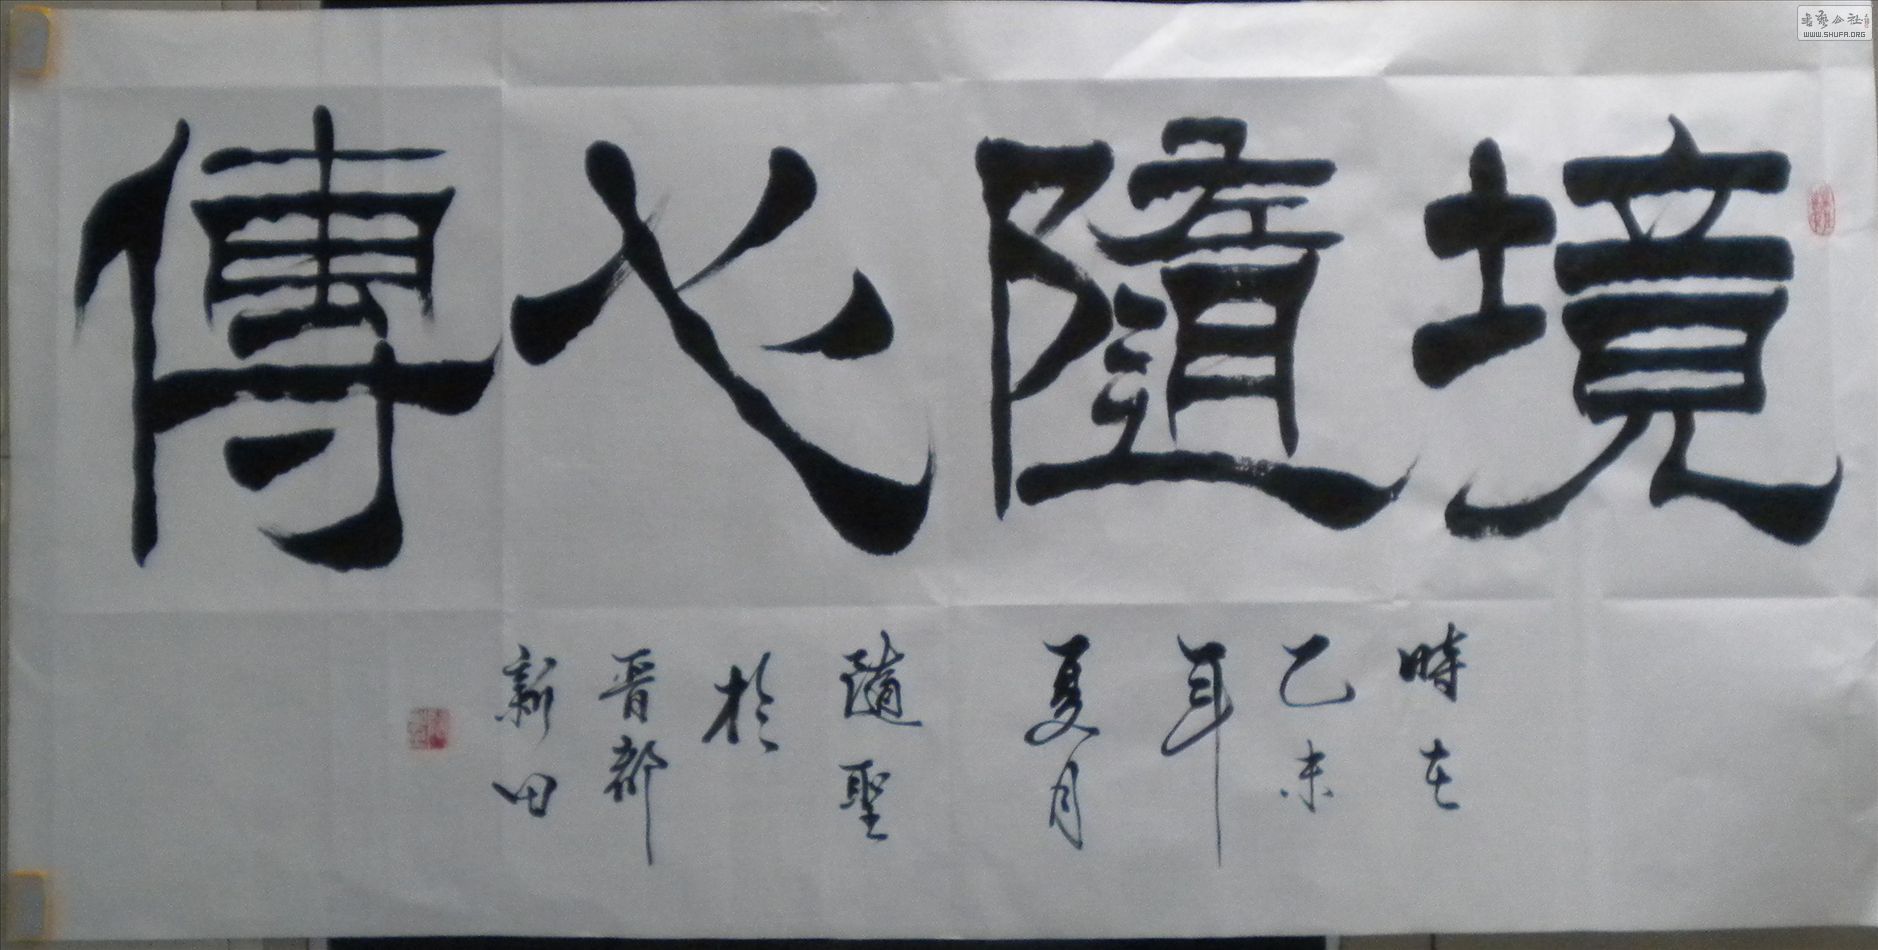 境隨心傳
時在
乙未
年
夏月
隨聖
於
晉都
新田
書藝公社
WWW.SHUFA.ORG